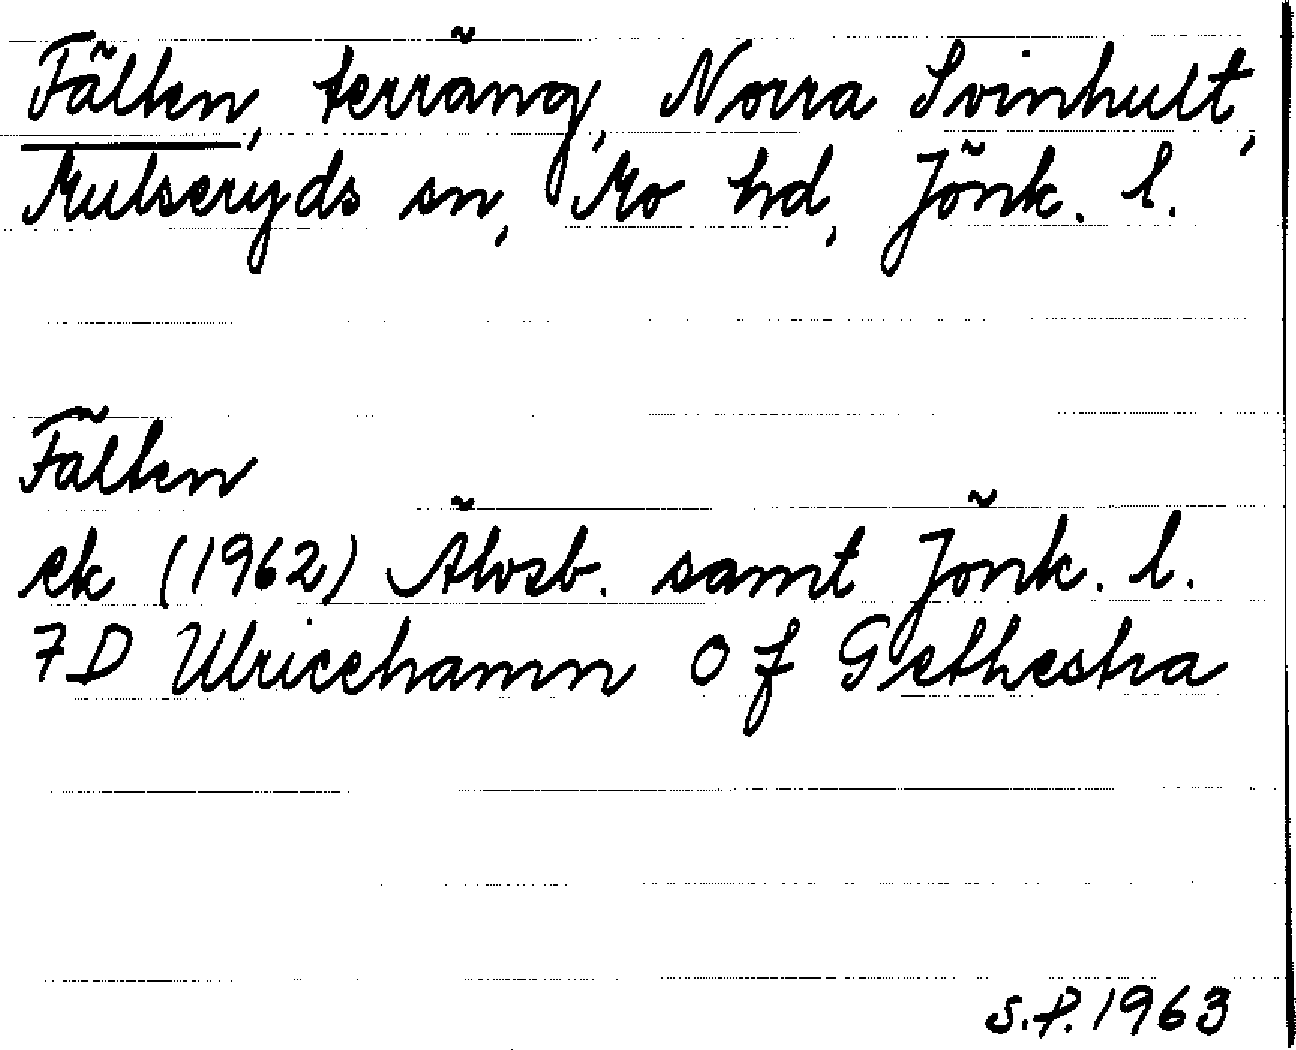 Fälten, terräng, Norra Svinhult,
Mulseryds sn, Mo hd, Jönk. l.
Fälten
ek (1962) Älvsb. samt Jönk. l.
7D Ulricehamn 0 f Grethestra
S.P. 1963